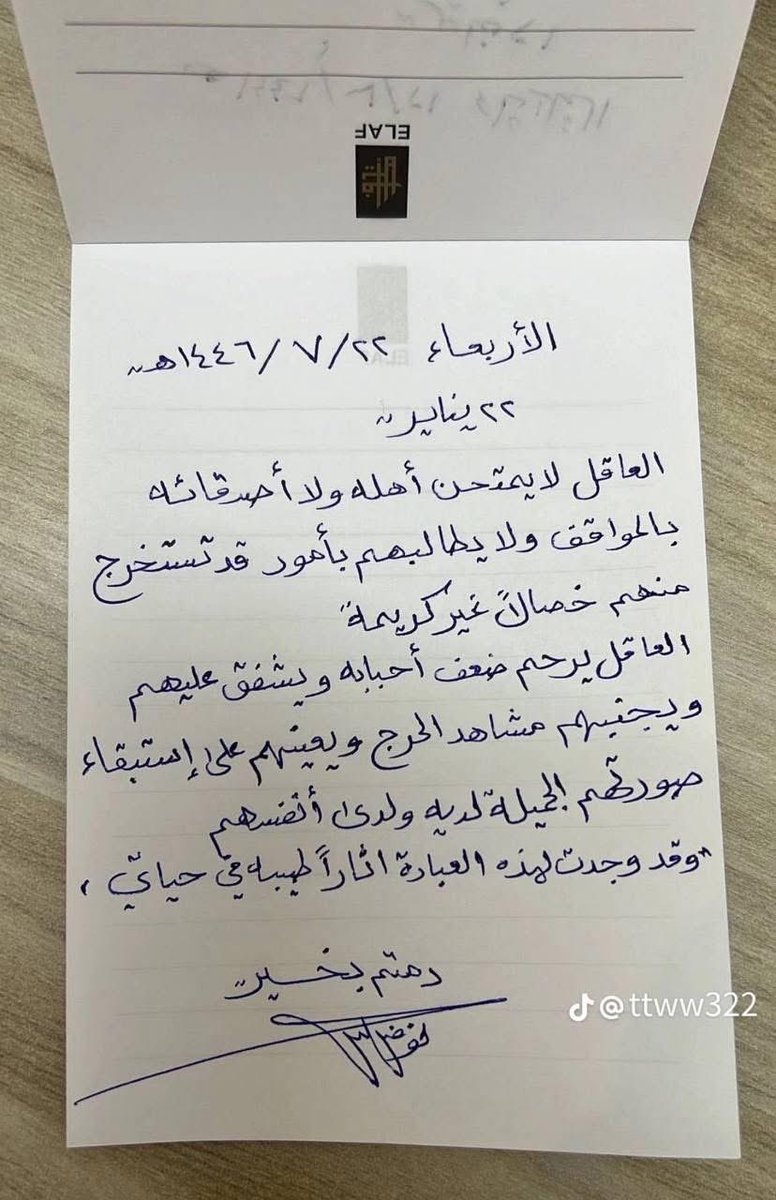 ELAF
الأربعاء ٢٢/٧/١٤٤٦هـ
٢٢ يناير
العاقل لا يمتحن أهله ولا أصدقائه
بالمواقف ولا يطالبهم بأمور قد تستخرج
منهم خصالاً غير كريمة
العاقل يرحم ضعف أحبابه ويشفق عليهم
ويجنبهم مشاهد الحرج ويعينهم على إستبقاء
صورتهم الجميلة لديه ولدى أنفسهم
"وقد وجدت لهذه العبادة اثاراً طيبه في حياتي،
دمتم بخير
@ttww322